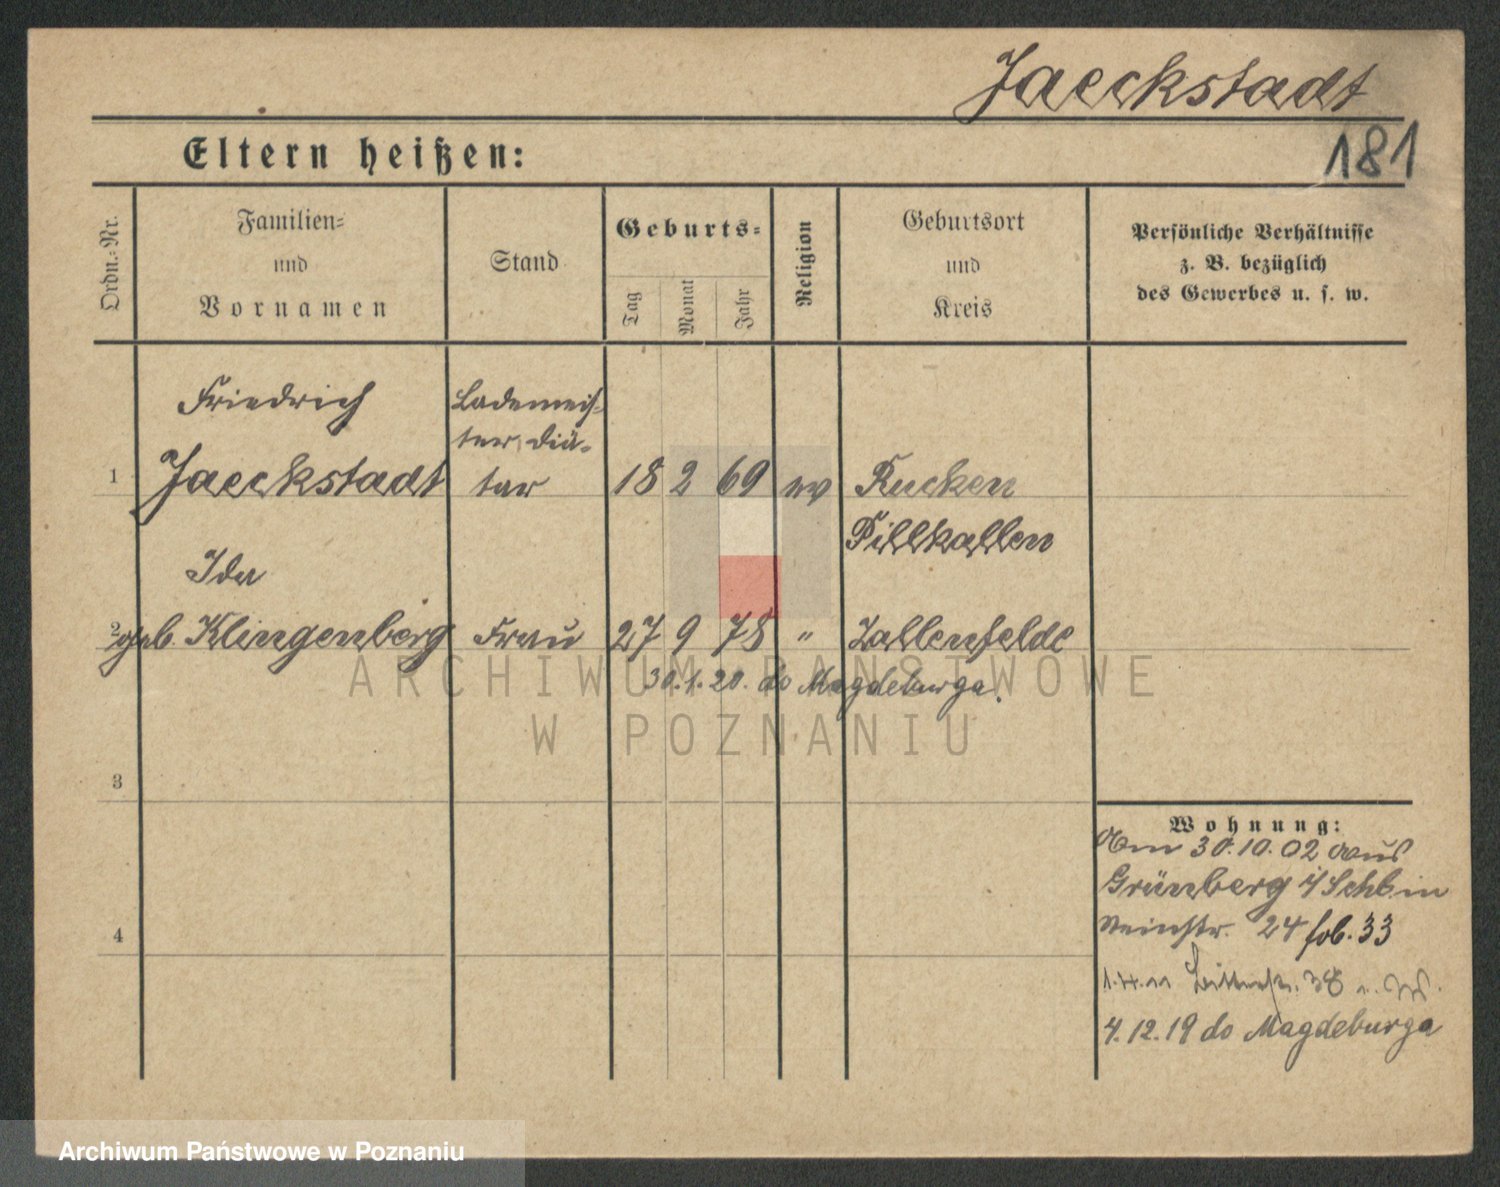 Jaeckstadt
181
Eltern heißen:
Ordn.-Nr.
Familien-
und
Vornamen
Stand
Geburts-
Tag
Monat
Jahr
Religion
Geburtsort
und
Kreis
Persönliche Verhältnisse
z. B. bezüglich
des Gewerbes u. s. w.
Friedrich
Lademeis-
ter, Diä-
1 Jaeckstadt tar 18 2 69 ev Rucken
Pillkallen
Ida
2 geb. Klingenberg Frau 27 9 78 " Zallenfelde
30.1.20. do Magdeburga.
ARCHIWUM PAŃSTWOWE
W POZNANIU
3
Wohnung:
Am 30.10.02 aus
Grünberg i/Schl. in
24 33
4
1.4.11 38
4.12.19 do Magdeburga
Archiwum Państwowe w Poznaniu